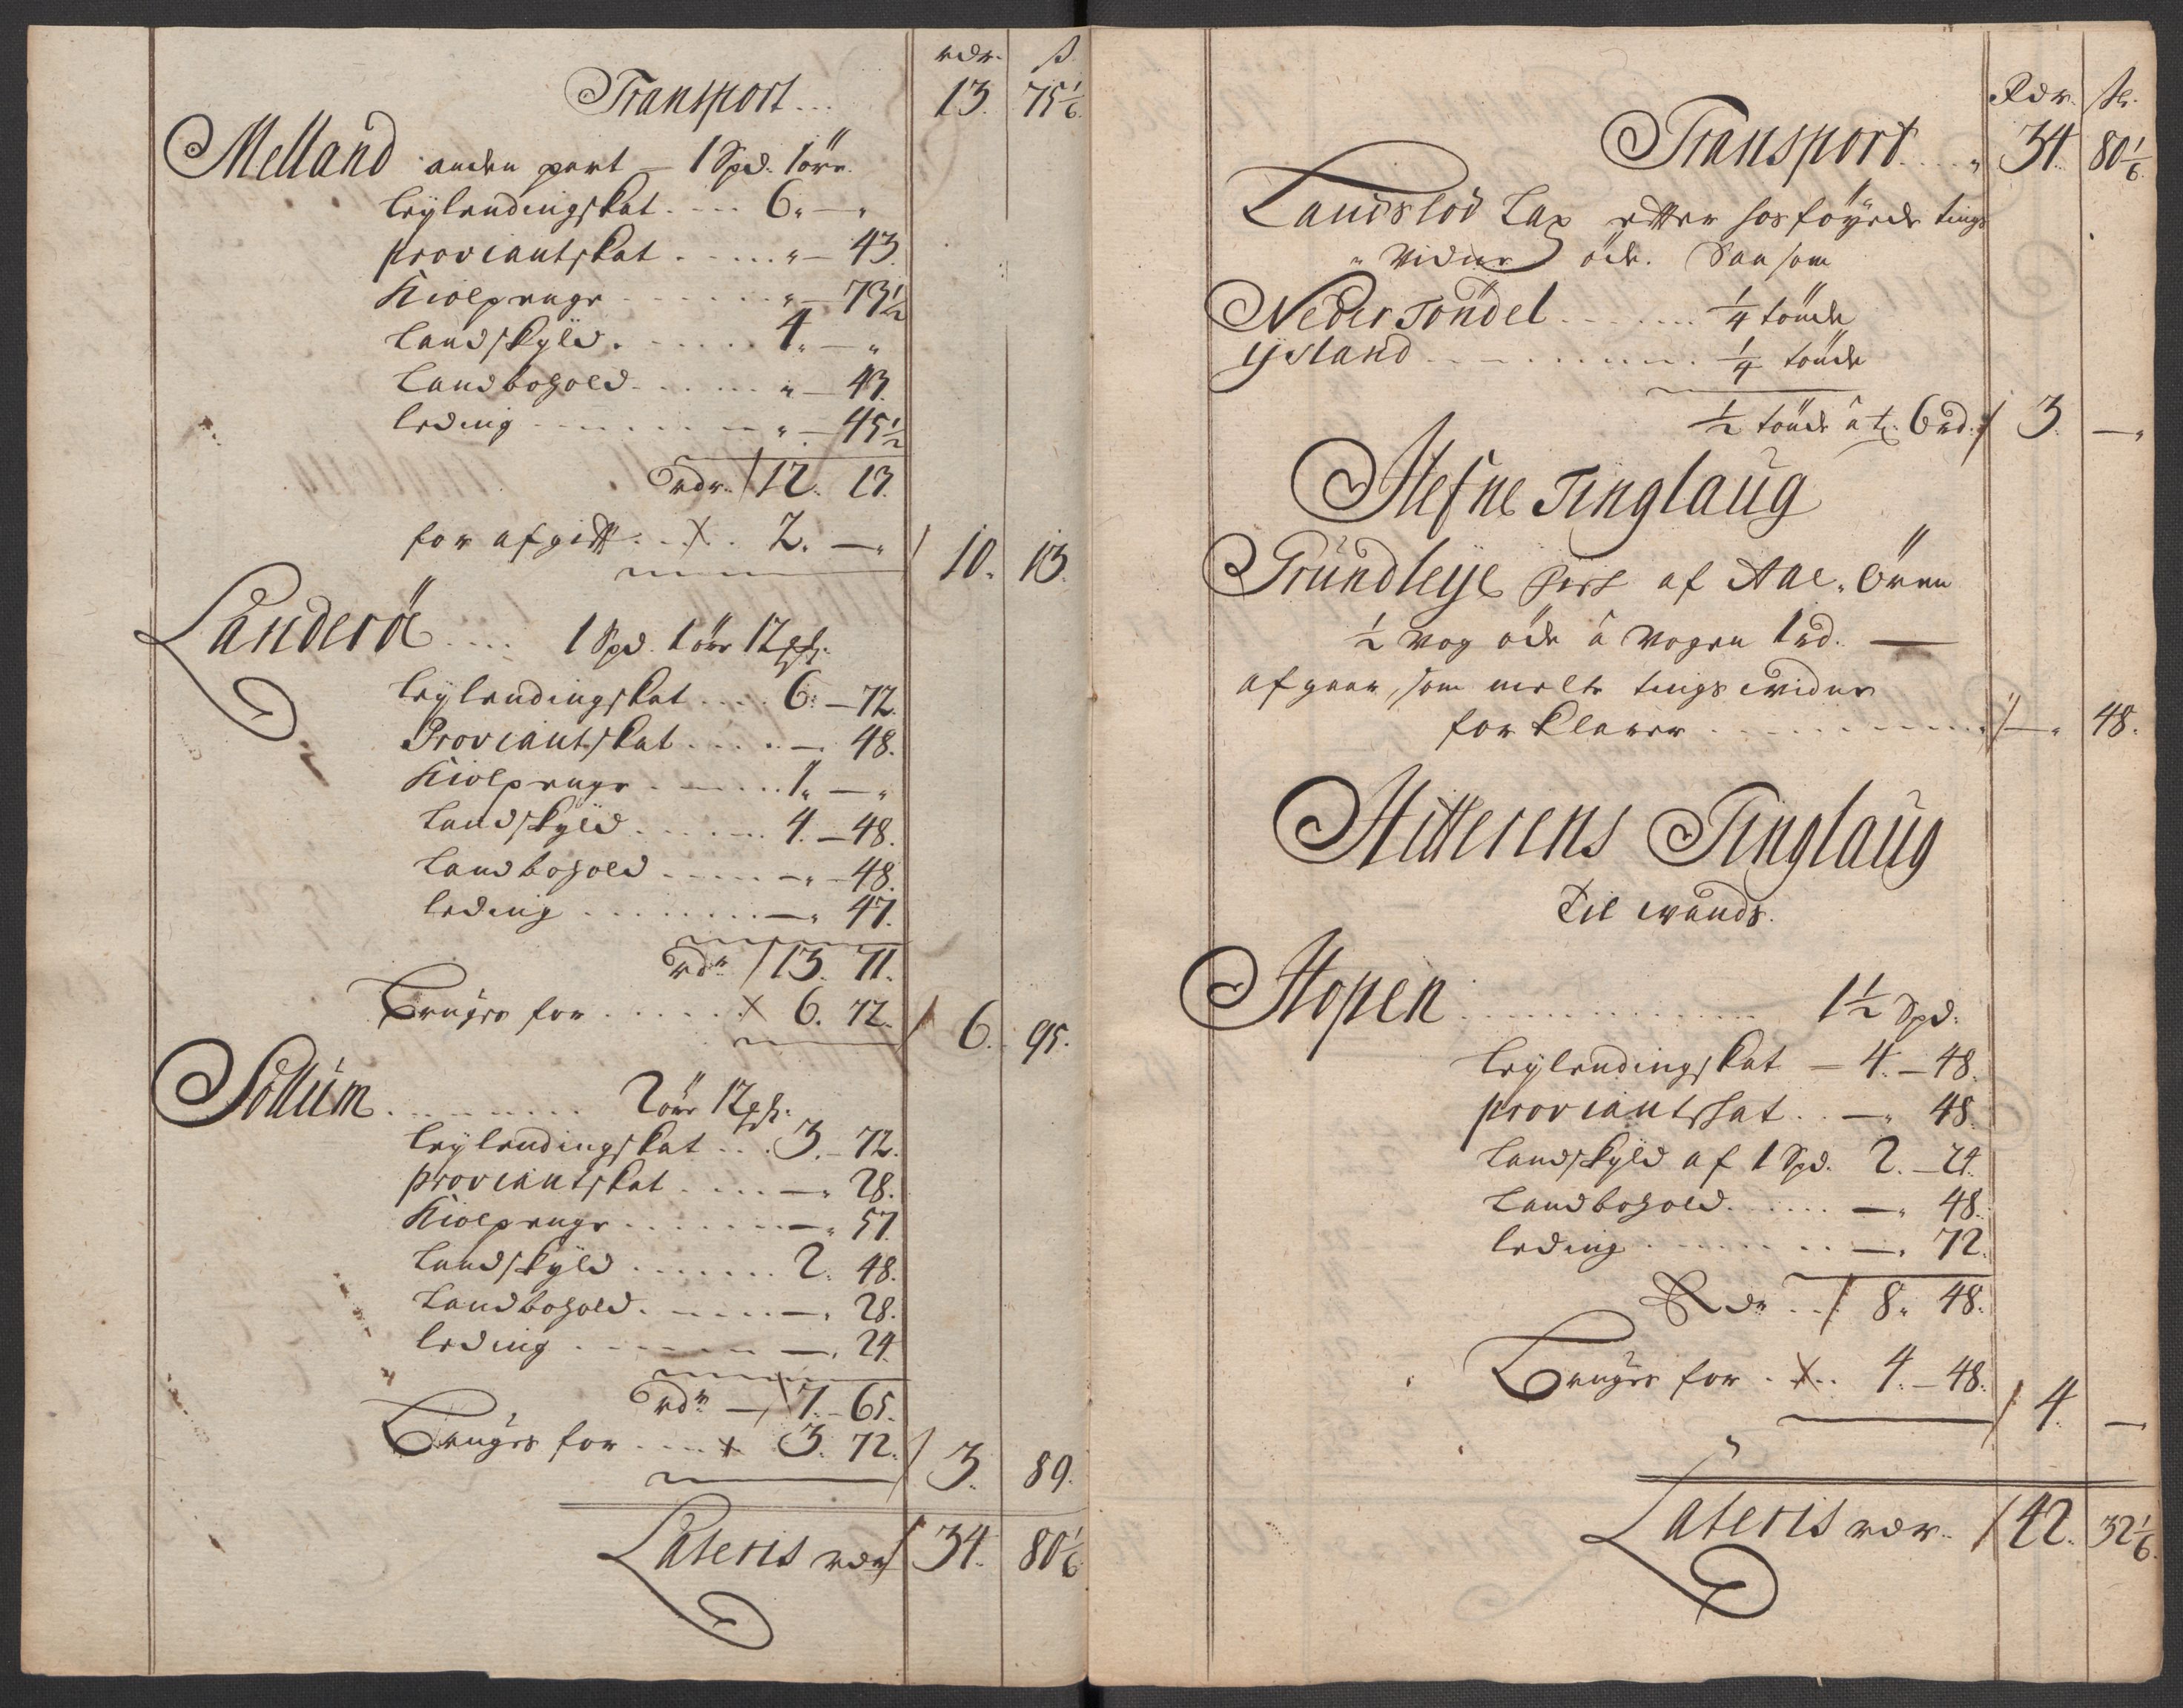 rdr. ß
Transport... 13. 75 1/6
Melland anden part — 1 Spd. 1 öre.
leÿlendingskat.... 6. — "
proviantskat...... " — 43.
Kiolpenge....... " — 73 1/2
landskyld....... 4. — "
Landbohold...... " — 43.
leding.......... " — 45 1/2
rdr. / 12. 13.
for afgift... X. 2. — " / 10. 13.
Landeröe.... 1 Spd. 1 öre 12 ß.
leÿlendingskat.... 6. — 72.
Proviantskat..... — 48.
Kiolpenge........ 1. — "
Landskÿld....... 4. — 48.
Landbohold..... — " — 48.
leding......... — " 47.
rdr / 13. 71.
Bruges for...... X 6. 72. / 6. 95.
Sollum......... 2 öre 12 ß.
leÿlendingskat... 3. — 72.
proviantskat..... — " 28.
Kiolpenge....... — " 57.
Landskÿld....... 2. 48.
Landbohold...... — " 28.
leding......... — " 24.
rdr — / 7. — 65.
Bruges for.... X 3. 72. / 3. 89.
Lateris rdr / 34. 80 1/6
Rdr. ß.
Transport.... " 34. 80 1/6
Landslod Lax efter hosföyede tings
" vidne öde. Saasom
Neder Söndel....... 1/4 tönde
ÿsland.......... 1/4 tönde
1/2 tönde â t. 6 rd. / 3. — "
Hefne Tinglaug
Grundleÿe Pert af Aae. Ören
1/2 vog öde â vogen 1 rd. —
afgaar som melte tings widne
forklarer............ / — " 48.
Hitterens Tinglaug
Til wands.
Hopen............. 1 1/2 Spd.
leÿlendingskat — 4. — 48.
proviantskat.. — " 48.
Landskÿld af 1 Spd. 2. — 24.
Landbohold..... — " 48.
leding........ — " 72.
Rdr... / 8. 48.
Bruges for. X.. 4. — 48. / 4. —
Lateris rdr. / 42. 32 1/6